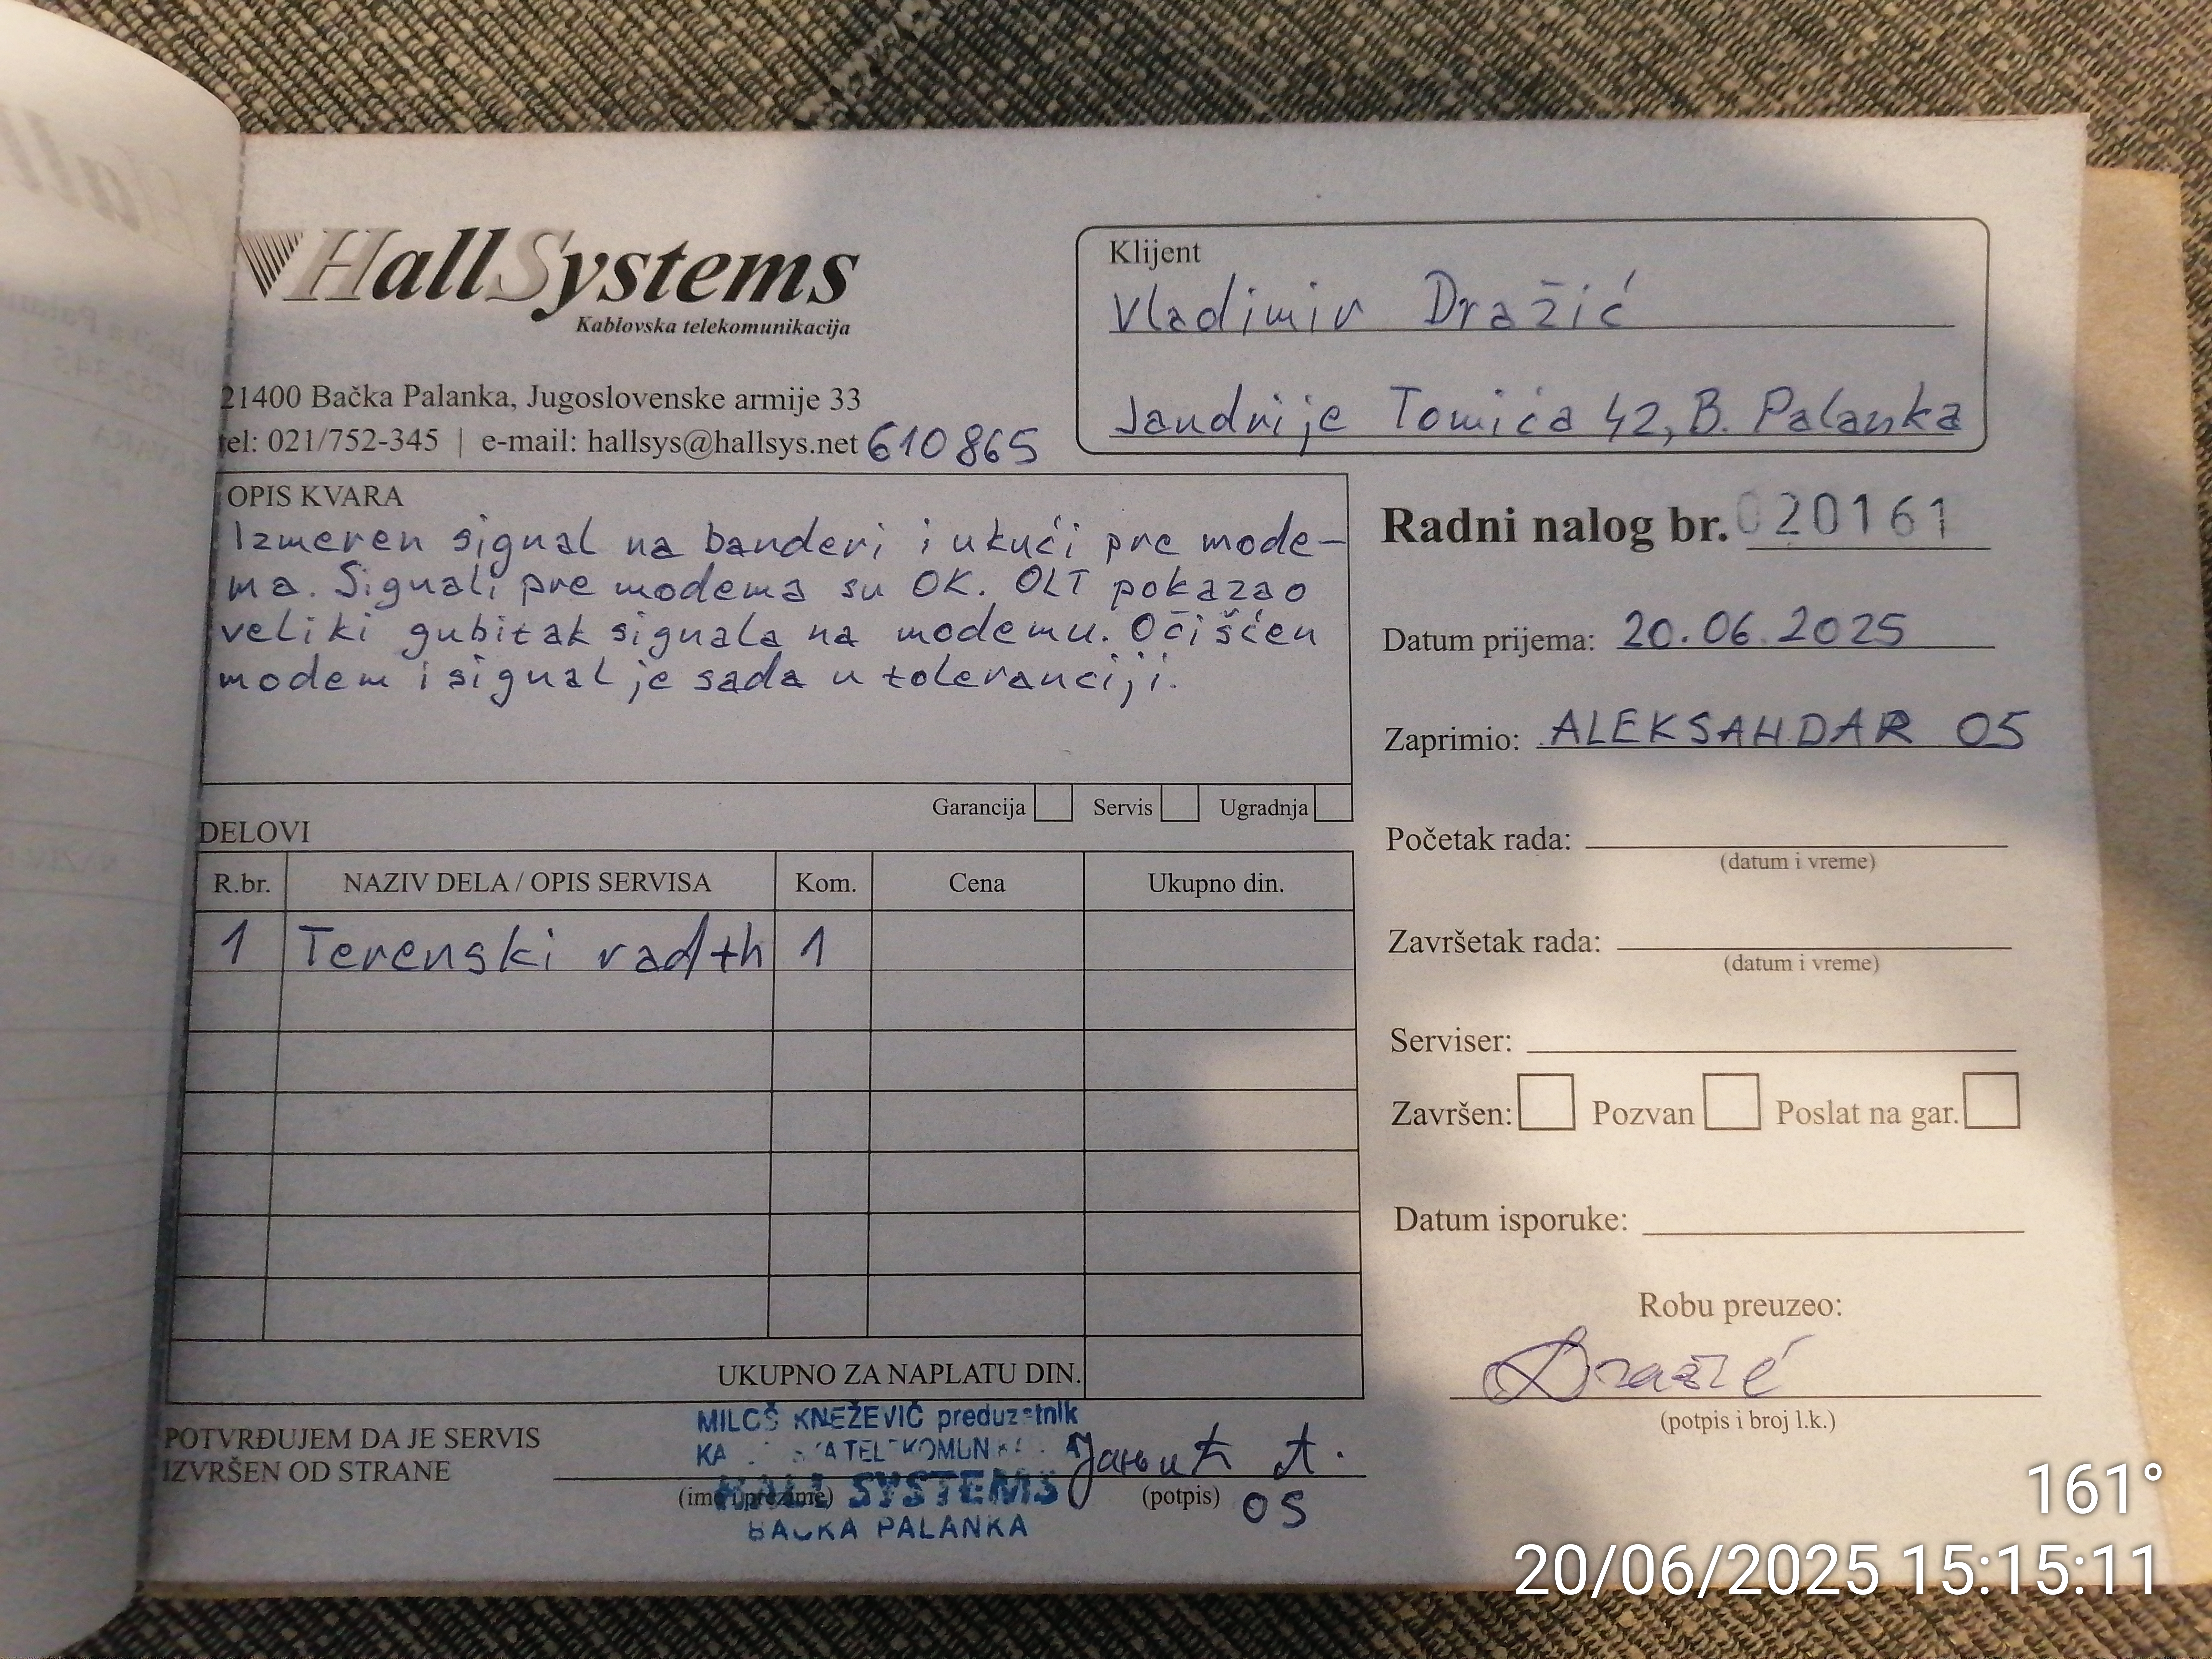 HallSystems
Kablovska telekomunikacija
21400 Bačka Palanka, Jugoslovenske armije 33
tel: 021/752-345 | e-mail: hallsys@hallsys.net 610865
Klijent
Vladimir Dražić
Jandrije Tomića 42, B. Palanka
OPIS KVARA
Izmeren signal na banderi i u kući pre mode-
ma. Signali pre modema su OK. OLT pokazao
veliki gubitak signala na modemu. Očišćen
modem i signal je sada u toleranciji.
Garancija Servis Ugradnja
DELOVI
R.br. NAZIV DELA / OPIS SERVISA Kom. Cena Ukupno din.
1 Terenski rad th 1
UKUPNO ZA NAPLATU DIN.
Radni nalog br. 020161
Datum prijema: 20.06.2025
Zaprimio: ALEKSANDAR 05
Početak rada:
(datum i vreme)
Završetak rada:
(datum i vreme)
Serviser:
Završen: Pozvan Poslat na gar.
Datum isporuke:
Robu preuzeo:
Dražić
(potpis i broj l.k.)
POTVRĐUJEM DA JE SERVIS
IZVRŠEN OD STRANE
(ime i prezime) (potpis)
MILOŠ KNEŽEVIĆ preduzetnik
HALL SYSTEMS
BAČKA PALANKA
05
161°
20/06/2025 15:15:11